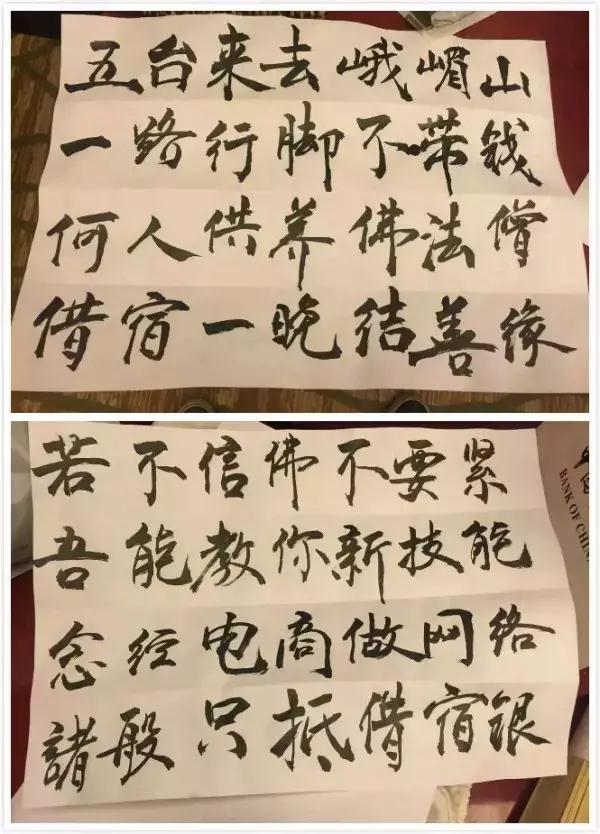 五台来去峨嵋山
一路行脚不带钱
何人供养佛法僧
借宿一晚结善缘
若不信佛不要紧
吾能教你新技能
念经电商做网络
諸般只抵借宿银
BANK OF CHINA